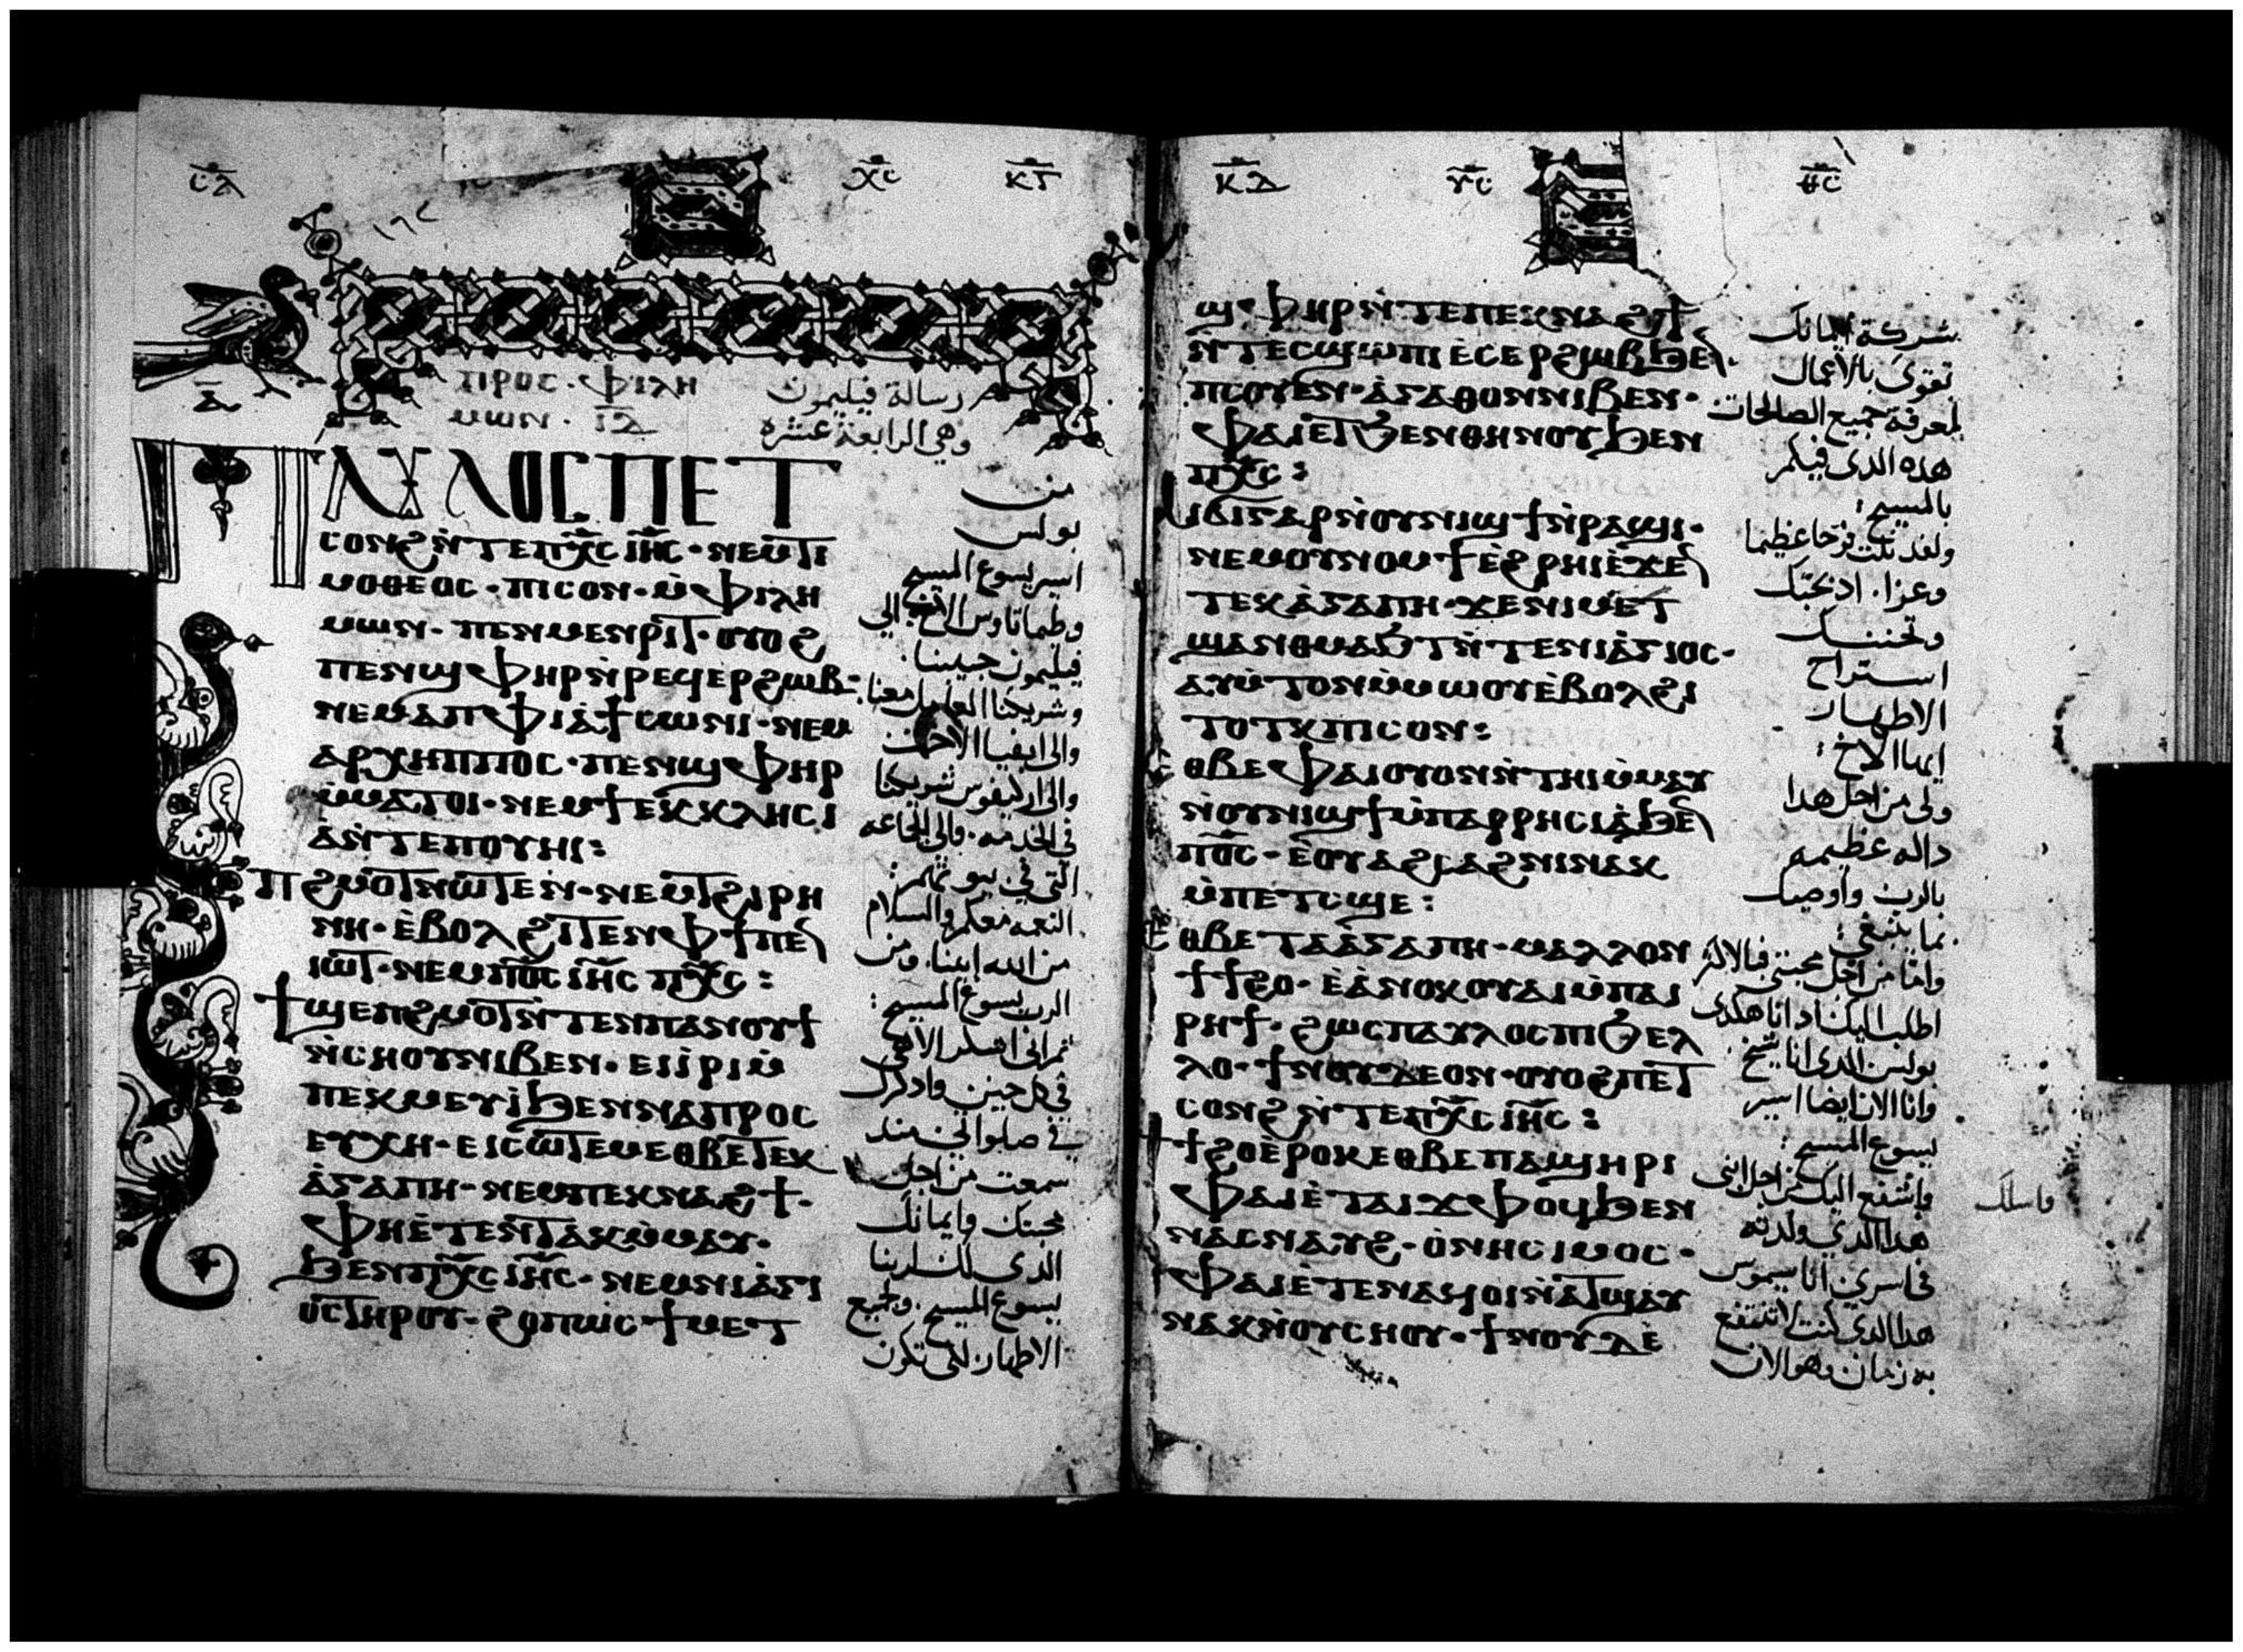 ⲥ̅ⲇ̅ ⲭ̅ⲥ̅ ⲕ̅ⲅ̅
١٦٢
ⲁ̅
ⲡⲣⲟⲥ · ⲫⲓⲗⲏ
ⲙⲱⲛ · ⲓ̅ⲇ̅
رسالة فيليمون
وهي الرابعة عشره
ⲡⲁⲩⲗⲟⲥ ⲡⲉⲧ
ⲥⲟⲛϩ ⲛ̀ⲧⲉ ⲡⲭ̅ⲥ ⲓⲏ̅ⲥ · ⲛⲉⲙ ⲧⲓ
ⲙⲟⲑⲉⲟⲥ · ⲡⲓⲥⲟⲛ · ⲙ̀ⲫⲓⲗⲏ
ⲙⲱⲛ · ⲡⲉⲛⲙⲉⲛⲣⲓⲧ · ⲟⲩⲟϩ
ⲡⲉⲛϣⲫⲏⲣ ⲛ̀ⲣⲉϥⲉⲣϩⲱⲃ ·
ⲛⲉⲙ ⲁⲡⲫⲓⲁ̀ ϯⲥⲱⲛⲓ · ⲛⲉⲙ
ⲁⲣⲭⲏⲡⲡⲟⲥ · ⲡⲉⲛϣⲫⲏⲣ
ⲙ̀ⲙⲁⲧⲟⲓ · ⲛⲉⲙ ϯⲉⲕⲕⲗⲏⲥⲓ
ⲁ̀ ⲛ̀ⲧⲉ ⲡⲟⲩⲏⲓ :
ⲡϩⲙⲟⲧ ⲛⲱⲧⲉⲛ · ⲛⲉⲙ ⲧϩⲓⲣⲏ
ⲛⲏ · ⲉ̀ⲃⲟⲗ ϩⲓⲧⲉⲛ ⲫϯ ⲡⲉⲛ
ⲓⲱⲧ · ⲛⲉⲙ ⲡⲟ̅ⲥ ⲓⲏ̅ⲥ ⲡⲭ̅ⲥ :
ϯϣⲉⲡϩⲙⲟⲧ ⲛ̀ⲧⲉⲛ ⲡⲁⲛⲟⲩϯ
ⲛ̀ⲥⲏⲟⲩ ⲛⲓⲃⲉⲛ · ⲉⲓⲓ̀ⲣⲓ ⲙ̀
ⲡⲉⲕⲙⲉⲩⲓ̀ ϧⲉⲛ ⲛⲁⲡⲣⲟⲥ
ⲉⲩⲭⲏ · ⲉⲓⲥⲱⲧⲉⲙ ⲉⲑⲃⲉ ⲧⲉⲕ
ⲁ̀ⲅⲁⲡⲏ · ⲛⲉⲙ ⲡⲉⲕⲛⲁϩϯ ·
ⲫⲏⲉ̀ⲧⲉⲛⲧⲁⲕ ⲙ̀ⲙⲁⲩ ·
ϧⲉⲛ ⲡⲭ̅ⲥ ⲓⲏ̅ⲥ · ⲛⲉⲙ ⲛⲓⲁ̀ⲅⲓ
ⲟⲥ ⲧⲏⲣⲟⲩ · ϩⲟⲡⲱⲥ ϯⲙⲉⲧ
من
بولس
اسير يسوع المسيح
وطيماتاوس الاخ الي
فيليمون حبيبنا
وشريكنا العامل معنا
والى ابفيا الاخت
والى ارخيفوس شريكنا
في الخدمه · والى الجماعه
التي في بيوتهم :
النعمه معكم والسلام
من الله ابينا · ومن
الرب يسوع المسيح :
ثم انى اشكر الاهي
في كل حين واذكرك
في صلواتي منذ
سمعت من اجل
محبتك وايمانك
الذى لك لربنا
يسوع المسيح · وجميع
الاطهار لكي تكون
ⲕ̅ⲇ̅ ⲩ̅ⲥ̅ ⲑ̅ⲥ̅
ϣⲫⲏⲣ ⲛ̀ⲧⲉ ⲡⲉⲕⲛⲁϩϯ
ⲛ̀ⲧⲉⲥϣⲱⲡⲓ ⲉ̀ⲥⲉⲣϩⲱⲃ ϧⲉⲛ ·
ⲡⲥⲟⲩⲉⲛ · ⲁ̀ⲅⲁⲑⲟⲛ ⲛⲓⲃⲉⲛ ·
ⲫⲁⲓ ⲉⲧϧⲉⲛ ⲑⲏⲛⲟⲩ ϧⲉⲛ
ⲡⲭ̅ⲥ :
ⲁⲓϭⲓ ⲅⲁⲣ ⲛ̀ⲟⲩⲛⲓϣϯ ⲛ̀ⲣⲁϣⲓ ·
ⲛⲉⲙ ⲟⲩⲛⲟⲙϯ ⲉ̀ϩⲣⲏⲓ ⲉ̀ϫⲉⲛ
ⲧⲉⲕⲁ̀ⲅⲁⲡⲏ · ϫⲉ ⲛⲓⲙⲉⲧ
ϣⲁⲛⲑⲙⲁϧⲧ ⲛ̀ⲧⲉ ⲛⲓⲁ̀ⲅⲓⲟⲥ ·
ⲁⲩⲙ̀ⲧⲟⲛ ⲙ̀ⲙⲱⲟⲩ ⲉ̀ⲃⲟⲗ ϩⲓ
ⲧⲟⲧⲕ ⲡⲓⲥⲟⲛ :
ⲉⲑⲃⲉ ⲫⲁⲓ ⲟⲩⲟⲛ ⲛ̀ⲧⲏⲓ ⲙ̀ⲙⲁⲩ
ⲛ̀ⲟⲩⲛⲓϣϯ ⲙ̀ⲡⲁⲣⲣⲏⲥⲓⲁ̀ ϧⲉⲛ
ⲡⲟ̅ⲥ · ⲉ̀ⲟⲩⲁϩⲥⲁϩⲛⲓ ⲛⲁⲕ
ⲙ̀ⲡⲉⲧⲥϣⲉ :
ⲉⲑⲃⲉ ⲧⲁⲁ̀ⲅⲁⲡⲏ · ⲙⲁⲗⲗⲟⲛ
ϯϯϩⲟ · ⲉ̀ⲁ̀ⲛⲟⲕ ⲟⲩⲁⲓ ⲙ̀ⲡⲁⲓ
ⲣⲏϯ · ϩⲱⲥ ⲡⲁⲩⲗⲟⲥ ⲡⲓϧⲉⲗ
ⲗⲟ · ϯⲛⲟⲩ ⲇⲉⲟⲛ · ⲟⲩⲟϩ ⲡⲉⲧ
ⲥⲟⲛϩ ⲛ̀ⲧⲉ ⲡⲭ̅ⲥ ⲓⲏ̅ⲥ :
ϯϯϩⲟ ⲉ̀ⲣⲟⲕ ⲉⲑⲃⲉ ⲡⲁϣⲏⲣⲓ
ⲫⲁⲓ ⲉ̀ⲧⲁⲓϫⲫⲟϥ ϧⲉⲛ
ⲛⲁⲥⲛⲁⲩϩ · ⲟ̀ⲛⲏⲥⲓⲙⲟⲥ ·
ⲫⲁⲓ ⲉ̀ⲧⲉⲛⲁϥⲟⲓ ⲛ̀ⲁⲧϣⲁⲩ
ⲛⲁⲕ ⲛ̀ⲟⲩⲥⲏⲟⲩ · ϯⲛⲟⲩ ⲇⲉ̀
شركة ايمانك
تقوى بالاعمال
لمعرفة جميع الصالحات
هذه الذى فيكم
بالمسيح :
ولقد نلت فرحا عظيما
وعزا · اذ محبتك
وتحننك
استراح
الاطهار
ايها الاخ :
ولي من اجل هذا
داله عظيمه
بالرب واوصيك
بما ينبغي :
واما من اجل محبتي فبالاكثر
اطلب اليك اذ انا هكذى
بولس الذى انا شيخ
وانا الان ايضا اسير
يسوع المسيح :
واشفع اليك من اجل ابنى
هذا الذي ولدته
في اسري اناسيموس
هذا الذى كنت لا تنتفع
به زمان وهو الان
واسلك